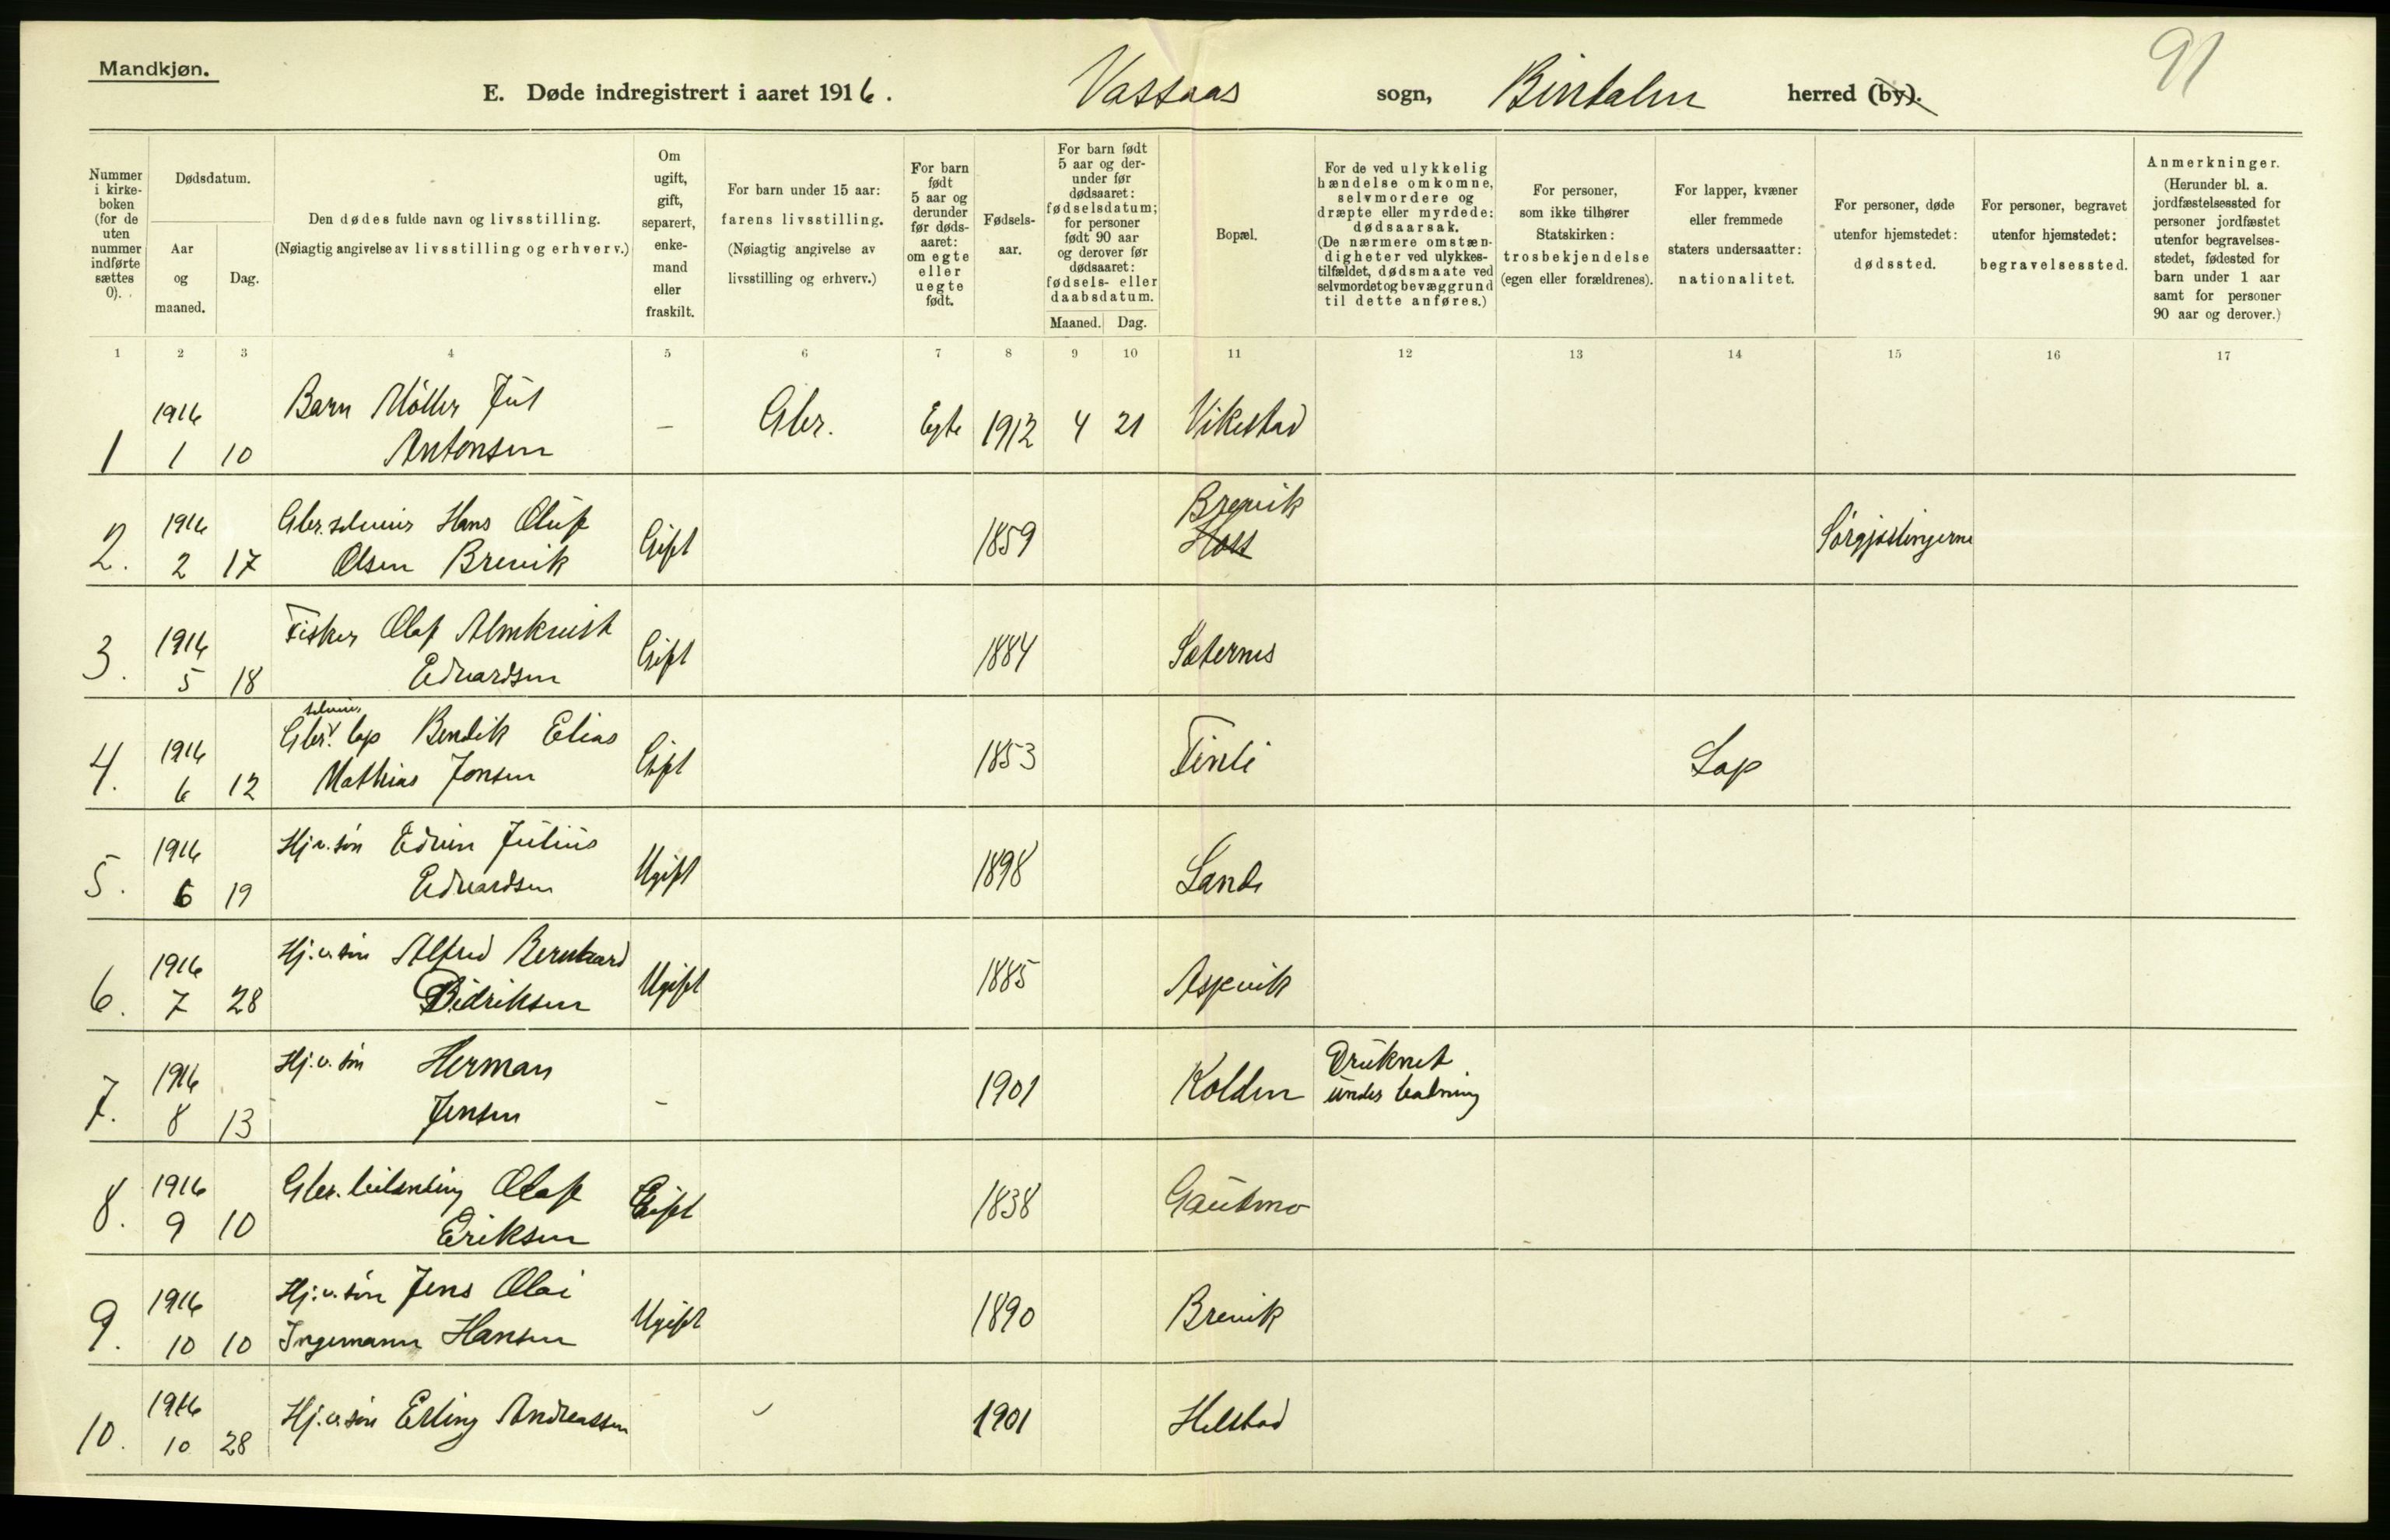 91
Mandkjøn.
E. Døde indregistrert i aaret 1916. Vassaas sogn, Bindalen herred (by).
Nummer i kirke- boken (for de uten nummer indførte sættes 0).
Dødsdatum.
Aar og maaned.
Dag.
Den dødes fulde navn og livsstilling.
(Nøiagtig angivelse av livsstilling og erhverv.)
Om ugift, gift, separert, enke- mand eller fraskilt.
For barn under 15 aar:
farens livsstilling.
(Nøiagtig angivelse av
livsstilling og erhverv.)
For barn født 5 aar og derunder før døds- aaret: om egte eller uegte født.
Fødsels- aar.
For barn født 5 aar og der- under før dødsaaret: fødselsdatum; for personer født 90 aar og derover før dødsaaret: fødsels- eller daabsdatum.
Maaned. Dag.
Bopæl.
For de ved ulykkelig hændelse omkomne, selvmordere og dræpte eller myrdede: dødsaarsak. (De nærmere omstæn- digheter ved ulykkes- tilfældet, dødsmaate ved selvmordet og bevæggrund til dette anføres.)
For personer, som ikke tilhører Statskirken: trosbekjendelse (egen eller forældrenes).
For lapper, kvæner eller fremmede staters undersaatter: nationalitet.
For personer, døde utenfor hjemstedet: dødssted.
For personer, begravet utenfor hjemstedet: begravelsessted.
Anmerkninger. (Herunder bl. a. jordfæstelsessted for personer jordfæstet utenfor begravelses- stedet, fødested for barn under 1 aar samt for personer 90 aar og derover.)
1 2 3 4 5 6 7 8 9 10 11 12 13 14 15 16 17
1 1916 1 10 Barn Møller Jul Antonsen — Gbr. Egte 1912 4 21 Vikestad
2. 1916 2 17 Gbr. selveier Hans Oluf Olsen Brevik Gift 1859 Brevik Sørgjæslingerne
3. 1916 5 18 Fisker Olaf Almkvist Edvardsen Gift 1884 Sæternes
4. 1916 6 12 Gbr. selveier lap Bendik Elias Mathias Jonsen Gift 1853 Tinli Lap
5. 1916 6 19 Hj.v. søn Edvin Julius Edvardsen Ugift 1898 Sande
6. 1916 7 28 Hj.v. søn Alfred Bernhard Didriksen Ugift 1885 Aspevik
7. 1916 8 13 Hj.v. søn Herman Jensen - 1901 Kolden Druknet under badning
8. 1916 9 10 Gbr. leilending Olaf Eriksen Gift 1838 Gautmo
9. 1916 10 10 Hj.v. søn Jens Olai Ingemann Hansen Ugift 1890 Brevik
10. 1916 10 28 Hj.v. søn Erling Andreassen - 1901 Helstad